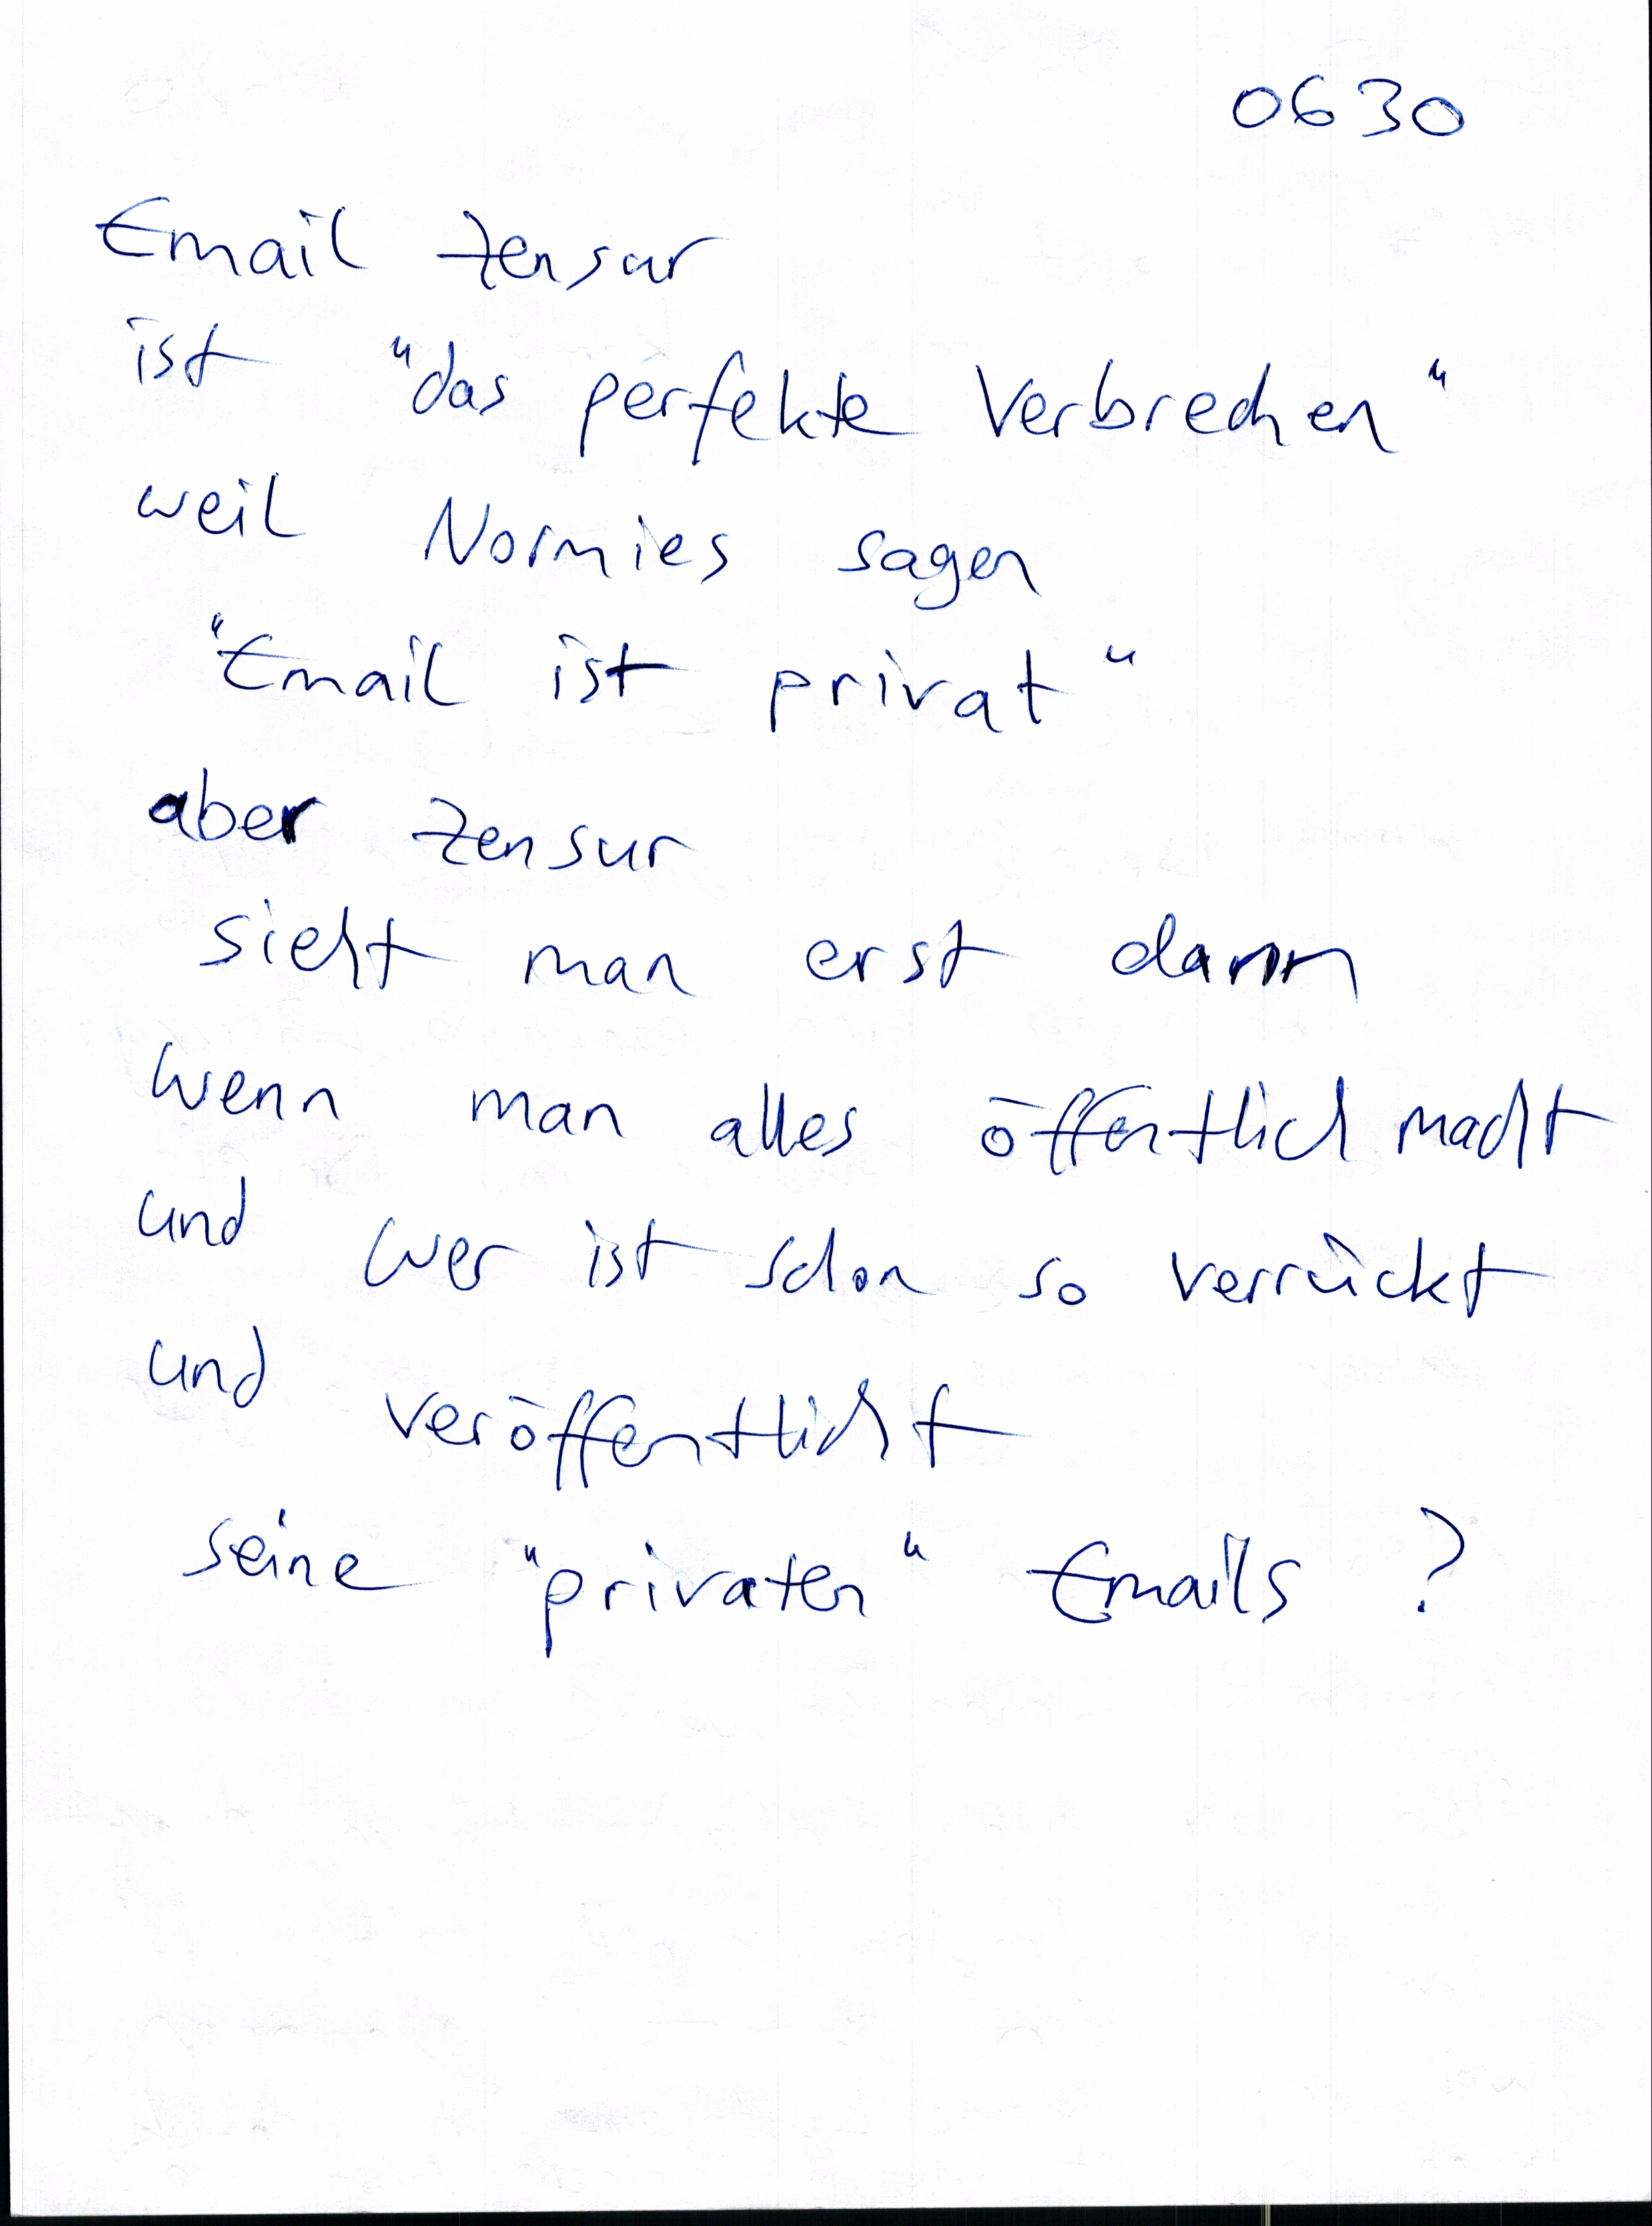 0630
Email Zensur
ist "das perfekte Verbrechen"
weil Normies sagen
"Email ist privat"
aber Zensur
sieht man erst dann
wenn man alles öffentlich macht
und wer ist schon so verrückt
und veröffentlicht
seine "privaten" Emails ?